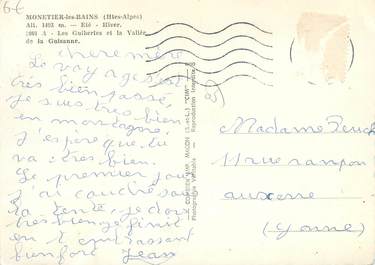 6€
MONETIER-les-BAINS (Htes-Alpes)
Alt. 1493 m. — Eté - Hiver.
Les Guibertes et la Vallée
de la Guisanne.
chère mère
Le voyage s'est
très bien passé
je suis très bien
en montagne.
J'espère que tu
va très bien.
Le premier jour
j'ai couché sous
la tente, je dors
très bien je finis
en t'embrassant
bien fort Jean
COMBIER IMP. MACON (S.-et-L.) "CIM"
Photographie Véritable - Reproduction Interdite
05
Madame
11 rue
auxerre
(Yonne)